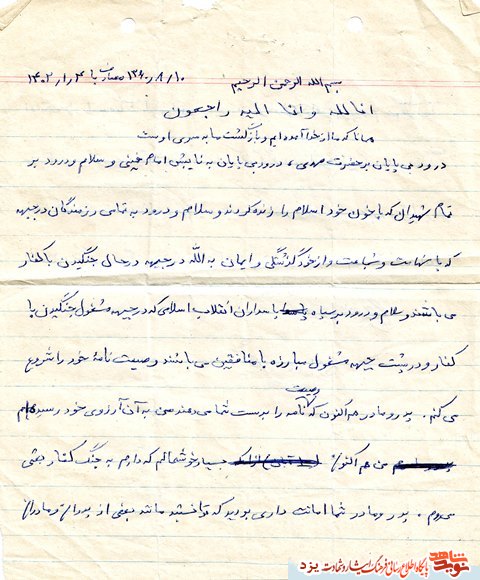 بسم الله الرحمن الرحیم ۱۳۶۰/۸/۱۰ مصادف با ۱۴۰۲/۱/۴
انا لله و انا الیه راجعون
همانا که ما از خدا آمده ایم و بازگشت ما به سوی اوست
درود بی پایان بر حضرت مهدی، درود بی پایان به نایبش امام خمینی و سلام و درود بر
تمام شهیدان که با خون خود اسلام را زنده کردند و سلام و درود به تمامی رزمندگان در جبهه
که با شهامت و شجاعت و از خود گذشتگی و ایمان به الله در جبهه در حال جنگیدن با کفار
می باشند و سلام و درود بر سپاه پاسداران انقلاب اسلامی که در جبهه مشغول جنگیدن با
کفار و در پشت جبهه مشغول مبارزه با منافقین می باشند وصیت نامهٔ خود را شروع
می کنم. پدر و مادر هم اکنون که وصیت نامه را بدست شما می دهند من به آن آرزوی خود رسیده ام
من هم اکنون بسیار خوشحالم که دارم به جنگ کفار بعثی
می روم. پدر و مادر شما امانت داری بودید که نتوانستید مانند بعضی از پدران و مادران
نوید شاهد
پایگاه اطلاع رسانی فرهنگ ایثار و شهادت یزد